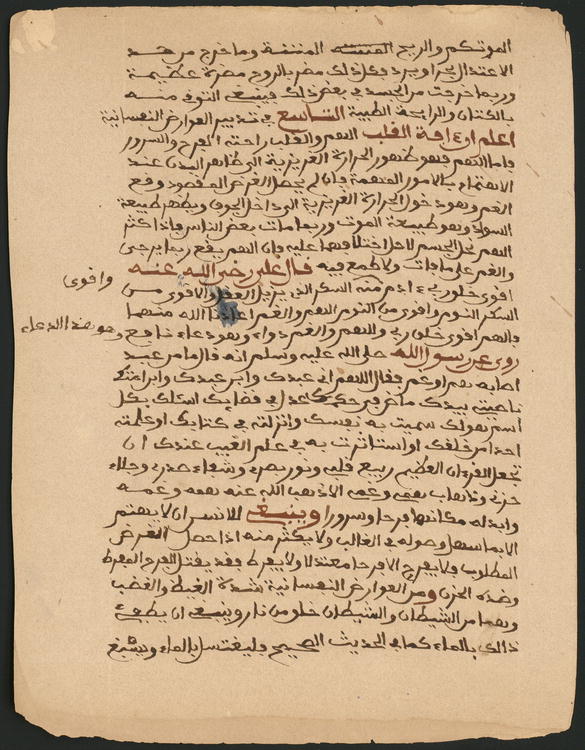 الموتكم والريح المنتنة وما خرج من هذ
الاعتدال بحر او برد فكل ذلك مضر بالروح مضرة عظيمة
وربما خرجت من الجسد في بعض ذلك فينبغي التوفي منه
بالكتان والرايحة الطيبة التاسع في تدبير العوارض النفسانية
اعلم ان ءافة القلب الهم والقلب راحته الفرح والسرور
فاما الهم فهو ظهور الحرارة الغريزية الى ظاهر البدن عند
الاهتمام بالامور المهمة فان لم يحصل الغرض المقصود وقع
الغم وهو دخول الحرارة الغريزية الى داخل الجوف ويظهر طبيعة
السوداء وهو طبيعة الموت وربما مات بعض الناس فاذا كثر
الهم نحل الجسم لاجل اختلافهما عليه فان الهم يقع ربما يرجى
والغم على ما فات ولا طمع فيه قال علي رضي الله عنه
اقوى خلق ربي ءادم منه السكر الذي يزيل العقل والاقوى من
واقوى
السكر النوم واقوى من النوم الهم والغم اعاذنا الله منهما
فالهم اقوى خلق ربي وللهم والغم دواء وهو دعاء نافع
وهو هذا الدعاء
روي عن رسول الله صلى الله عليه وسلم انه قال ما من عبد
اصابه هم او غم فقال اللهم اني عبدك وابن عبدك وابن امتك
ناصيتي بيدك ماض في حكمك عدل في قضاؤك اسئلك بكل
اسم هو لك سميت به نفسك وانزلته في كتابك او علمته
احدا من خلقك او استاثرت به في علم الغيب عندك ان
تجعل القرءان العظيم ربيع قلبي ونور بصري وشفاء صدري وجلاء
حزني وذهاب همي وغمي الا ذهب الله عنه همه وغمه
وابدله مكانهما فرحا وسرورا وينبغي للانسان لا يهتم
الا بما سهل وصوله في الغالب ولا يكثر منه اذا حصل الغرض
المطلوب ولا يفرح الا فرحا معتدلا ولا يفرط فقد يقتل الفرح المفرط
وضده الحزن ومن العوارض النفسانية شدة الغيظ والغضب
وهما من الشيطان والشيطان خلق من نار وينبغي ان يطفئ
ذالك بالماء كما في الحديث الصحيح فليغتسل بالماء وينبغي